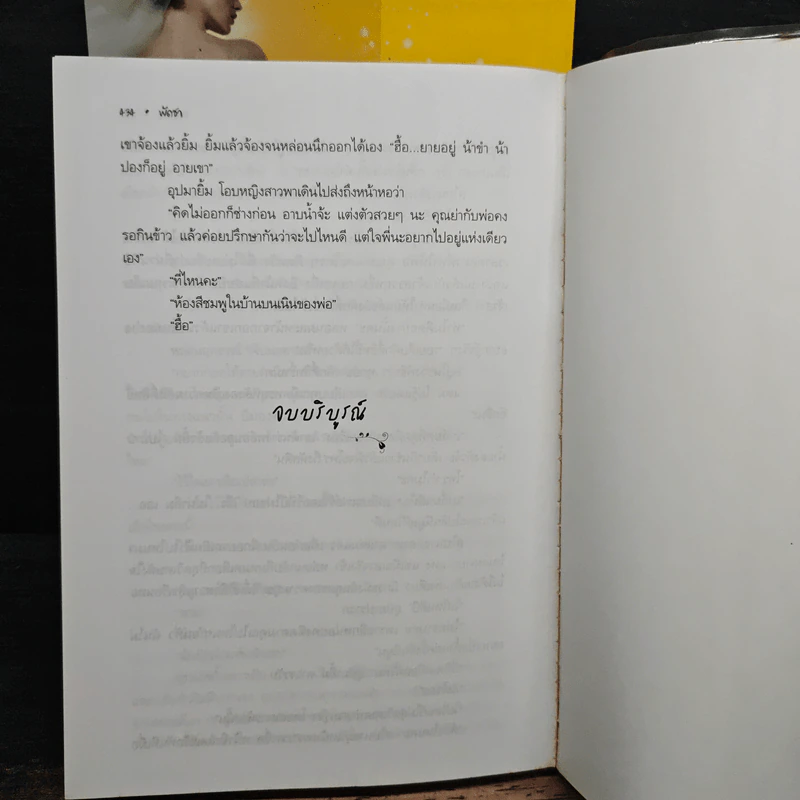 • พัดชา
เขาจ้องแล้วยิ้ม ยิ้มแล้วจ้องจนหล่อนนึกออกได้เอง “ฮื้อ...ยายอยู่ น้าขำ น้า
ปองก็อยู่ อายเขา”
อุปมายิ้ม โอบหญิงสาวพาเดินไปส่งถึงหน้าหอว่า
“คิดไม่ออกก็ช่างก่อน อาบน้ำจ้ะ แต่งตัวสวยๆ นะ คุณย่ากับพ่อคง
รอกินข้าว แล้วค่อยปรึกษากันว่าจะไปไหนดี แต่ใจพี่นะอยากไปอยู่แห่งเดียว
เอง”
“ที่ไหนคะ”
“ห้องสีชมพูในบ้านบนเนินของพ่อ”
“ฮื้อ”
จบบริบูรณ์